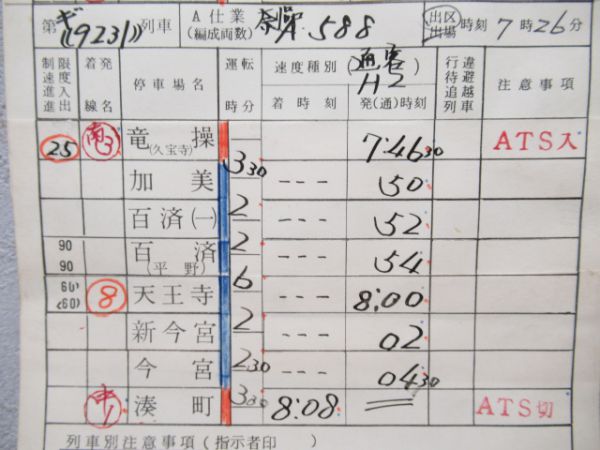 第 ギ((9231)) 列車 A仕業 588 出区 出場 時刻 7時26分
(編成両数)
制限速度進入進出 着発線名 停車場名 運転時分 速度種別(通客H2) 行違待避追越列車 注意事項
着時刻 発(通)時刻
25 南3 竜操 7:46 30 ATS入
(久宝寺)
3 30
加美 --- 50
2
百済(一) --- 52
2
90 百済 --- 54
90 (平野)
6
60 8 天王寺 --- 8:00
(60)
2
新今宮 --- 02
2 30
今宮 --- 04 30
3 30
湊町 8:08 ATS切
列車別注意事項(指示者印 )